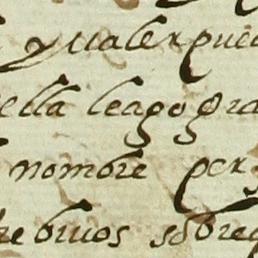 y uale y pued
ella leago gra
nombre per
re biuos sobre